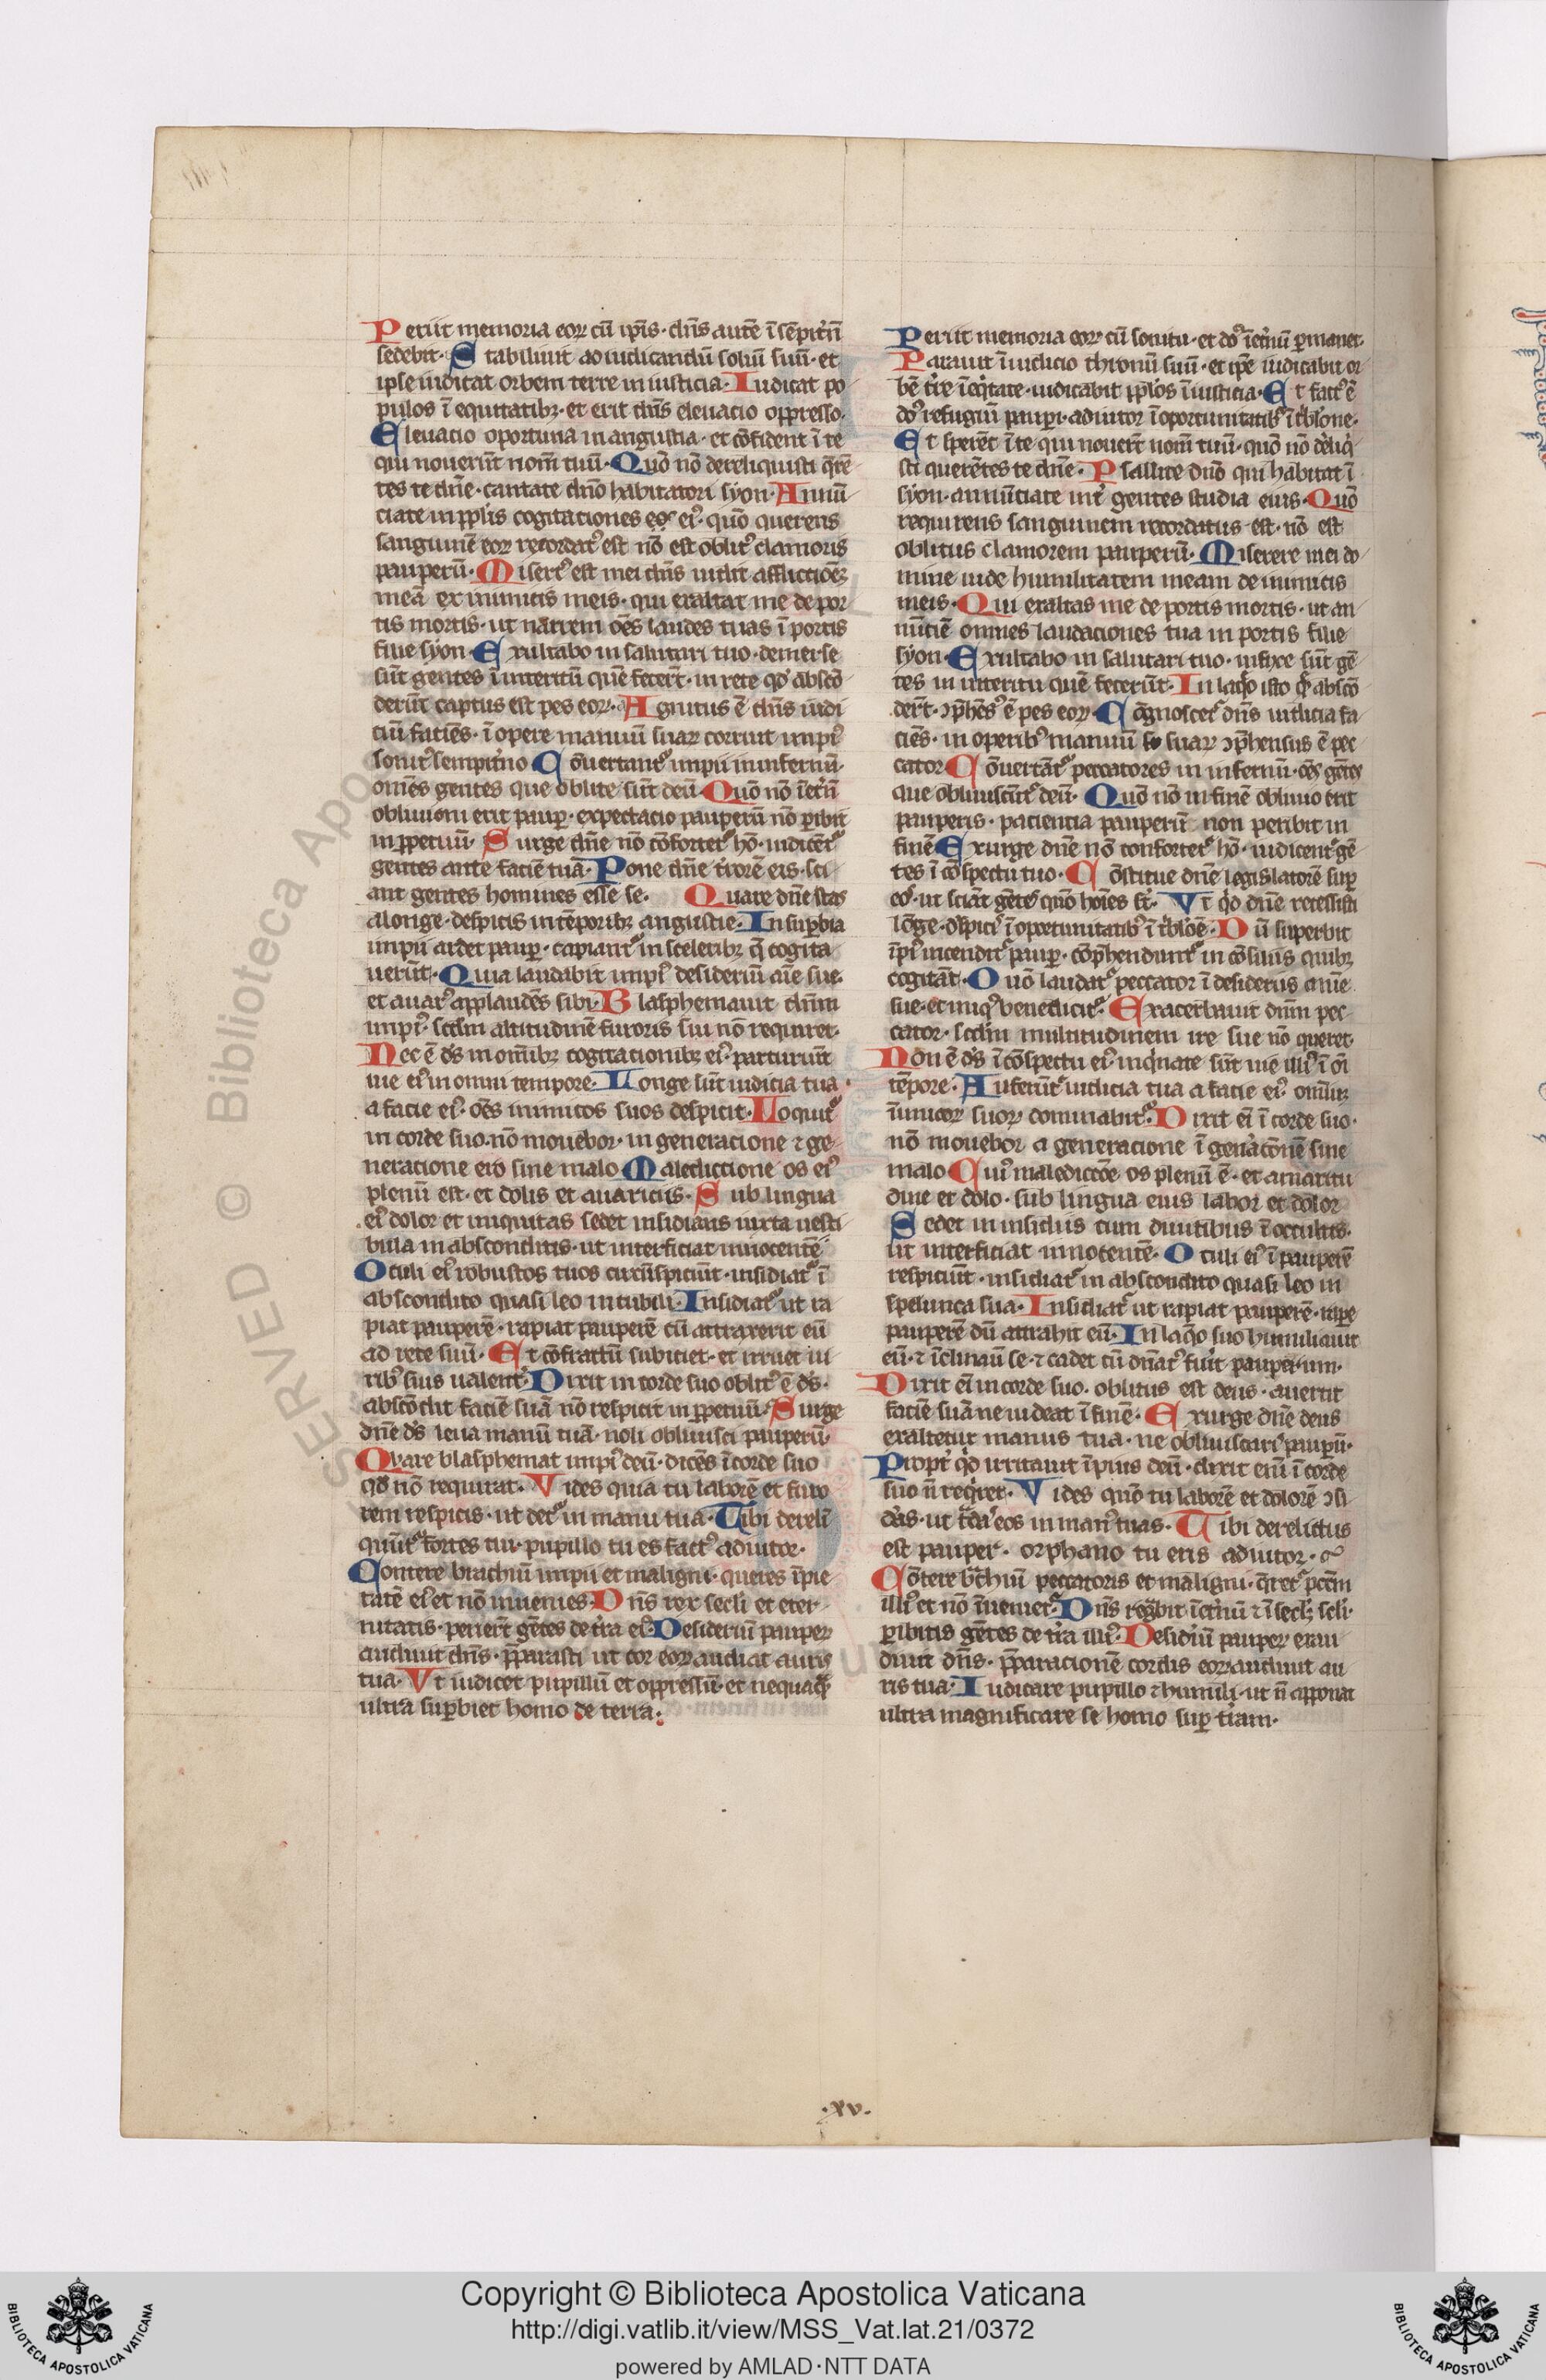 Periit memoria eoꝝ cū ip̄is · dn̄s autē ī sēpit̄nū
sedebit · Stabiliuit ad iudicandū soliū suū · et
ipse iudicat orbem terre in iusticia · Iudicat po
pulos ī equitatibꝫ · et erit dn̄s eleuacio oppresso ·
Eleuacio oportuna in angustia · et cōfident ī te
qui nouerūt nom̄ tuū · Quō nō dereliquisti q̄rē
tes te dn̄e · cantate dn̄o habitatori syon · Annū
ciate in pp̄lis cogitaciones eiꝰ · quō querens
sanguinē eoꝝ recordatꝰ est nō est oblitꝰ clamoris
pauperū · Misertꝰ est mei dn̄s uidit afflictiōēꝫ
meā ex inimicis meis · qui exaltat me de por
tis mortis · ut narrem oēs laudes tuas ī portis
filie syon · Exultabo in salutari tuo · demerse
sūt gentes ī interitū quē fecer̄t · in rete qd̄ abscō
derūt captus est pes eoꝝ · Agnitus ē dn̄s iudi
ciū faciēs · ī opere manuū suaꝝ corruit impiꝰ
sonitꝰ sempit̄no Cōuertantꝰ impii in infernū ·
omēs gentes que oblite sūt deū · Quō nō īet̄nū
obliuioni erit paup̄ · expectacio pauperū nō ꝑibit
in ꝑpetuū · Surge dn̄e nō cōfortetꝰ hō · iudicētꝰ
gentes ante faciē tuā · Pone dn̄e t̄rorē eis · sci
ant gentes homines esse se · Quare dn̄e stas
alonge · despicis in tēporibꝫ angustie · In suꝑbia
impii ardet paup̄ · capiantꝰ in sceleribꝫ q̄ cogita
uerūt · Quia laudabit impiꝰ desideriū aīe sue ·
et auarꝰ applaudēs sibi · Blasphemauit dn̄m
impiꝰ · scd̄m altitudinē furoris sui nō requiret ·
Nec ē ds̄ in om̄ibꝫ cogitacionibꝫ eiꝰ · parturiūt
uie eiꝰ in omni tempore · Longe sūt iudicia tua
a facie eiꝰ · oēs inimicos suos despicit · Loquitꝰ
in corde suo · nō mouebor · in generacione ⁊ ge
neracione ero sine malo Malediccione os eiꝰ
plenū est · et dolis et auariciis · Sub lingua
eiꝰ dolor et iniquitas sedet insidians iuxta uesti
bula in absconditis · ut interficiat innocentē
Oculi eiꝰ robustos tuos circūspiciūt · insidiatꝰ ī
abscondito quasi leo in cubili · Insidiatꝰ ut ra
piat pauperē · rapiat pauperē cū attraxerit eū
ad rete suū · Et cōfractū subiciet · et irruet ui
ribꝰ suis ualentꝰ · Dixit in corde suo oblitꝰ ē ds̄ ·
abscōdit faciē suā nō respicit in ꝑpetuū · Surge
dn̄e ds̄ leua manū tuā · noli obliuisci pauperū ·
Quare blasphemat impiꝰ deū · dicēs ī corde suo
qd̄ nō requirat · Vides quia tu laborē et furo
rem respicis · ut detꝰ in manu tua · Tibi dereli
quūtꝰ fortes tui · pupillo tu es factꝰ adiutor ·
Contere brachiū impii et maligni · queres īpie
tatē eiꝰ et nō inuenies · Dn̄s rex sec̄li et eter
nitatis · perier̄t gētes de t̄ra eiꝰ · Desideriū pauꝑeꝝ
audiuit dn̄s · p̄parasti ut cor eoꝝ audiat auris
tua · Vt iudicet pupillū et oppressū · et nequaq̄
ultra suꝑbiet homo de terra ·
Periit memoria eoꝝ cū sonitu · et dōꝰ īet̄nū ꝑmanet ·
Parauit ī iudicio thronū suū · et ip̄e iudicabit or
bē t̄re ī eq̇tate · iudicabit pp̄los ī iusticia · Et factꝰ ē
dōꝰ refugiū pauꝑi · adiutor ī oportunitatibꝰ ī t̄bl̓one ·
Et sperēt ī te qui nouer̄t nom̄ tuū · quō nō d̄eliq̇
sti querētes te dn̄e · Psallite dn̄o qui habitat ī
syon · annūtiate int̄ gentes studia eius · Quō
requirens sanguinem recordatus est · nō est
oblitus clamorem pauperū · Miserere mei do
mine uide humilitatem meam de inimicis
meis · Qui exaltas me de portis mortis · ut an
nūtiē omnes laudaciones tua in portis filie
syon · Exultabo in salutari tuo · infixe sūt gē
tes in interitu quē fecerūt · In laq̇o isto q̄ abscō
der̄t · ↄp̄hēsꝰ ē pes eoꝝ · Cōgnoscetꝰ dn̄s iudicia fa
ciēs · in operibꝰ manuū suaꝝ ↄp̄hensus ē pec
cator Cōuertātꝰ peccatores in infernū · oēs gētes
que obliuiscūtꝰ deū · Quō nō in finē obliuio erit
pauperis · paciencia pauperū non peribit in
finē Exurge dn̄e nō confortetꝰ hō · iudicentꝰ gē
tes ī cōspectu tuo · Cōstitue dn̄e legislatorē suꝑ
eōs · ut sciāt gētes quō hoīes st̄ · Vt q̇d dn̄e recessisti
lōge · despicꝰ ī oportunitatibꝰ ī t̄bl̓oē · Dū superbit
īpiꝰ incenditꝰ pauꝑ · cōp̄henduntꝰ in cōsiliis quibꝫ
cogitāt · Quō laudatꝰ peccator ī desideriis anīe
sue · et iniqꝰ benedicitꝰ · Exacerbauit dn̄m pec
cator · scd̄m multitudinem ire sue nō queret ·
Nōn ē ds̄ ī cōspectu eiꝰ · inq̇nate sūt uie illiꝰ ī oī
tēpore · Auferūtꝰ iudicia tua a facie eiꝰ · om̄ium
īimicoꝝ suoꝝ dominabitꝰ · Dixit eī ī corde suo ·
nō mouebor a generacione ī gen̄acōnē sine
malo Cuiꝰ malediccōe os plenū ē · et amaritu
dine et dolo · sub lingua eius labor et dolor
Sedet in insidiis cum diuitibus ī occultis ·
ut interficiat innocentē · Oculi eiꝰ ī pauperē
respiciūt · insidiatꝰ in abscondito quasi leo in
spelunca sua · Insidiatꝰ ut rapiat pauperē · rape
pauperē dū attrahit eū · In laq̇o suo humiliauit
eū · ⁊ īclinaū se · ⁊ cadet cū dn̄atꝰ fūit pauperum ·
Dixit eī in corde suo · oblitus est deus · auertit
faciē suā ne uideat ī finē · Exurge dn̄e deus
exaltetur manus tua · ne obliuiscarꝰ pauꝑū ·
Propt̄ q̇d irritauit īpius deū · dixit enī ī corde
suo n̄ req̇ret · Vides quō tu laborē et dolorē ↄsi
d̄as · ut t̄daꝰ eos in manꝰ tuas · Tibi derelictus
est pauper · orphano tu eris adiutor ·
Cōtere br̄chiū peccatoris et maligni · q̄retꝰ pctm̄
illiꝰ et nō īuenietꝰ · Dn̄s regn̄bit īet̄nū ⁊ ī secl̄ꝫ sc̄li ·
ꝑibitis gētes de t̄ra illiꝰ · Desid̄iū pauꝑeꝝ exau
diuit dn̄s · p̄paracionē cordis eoꝝ audiuit au
ris tua · Iudicare pupillo ⁊ humili · ut n̄ apponat
ultra magnificare se homo suꝑ t̄ram ·
· xv ·
Copyright © Biblioteca Apostolica Vaticana
http://digi.vatlib.it/view/MSS_Vat.lat.21/0372
powered by AMLAD · NTT DATA
BIBLIOTECA APOSTOLICA VATICANA
BIBLIOTECA APOSTOLICA VATICANA